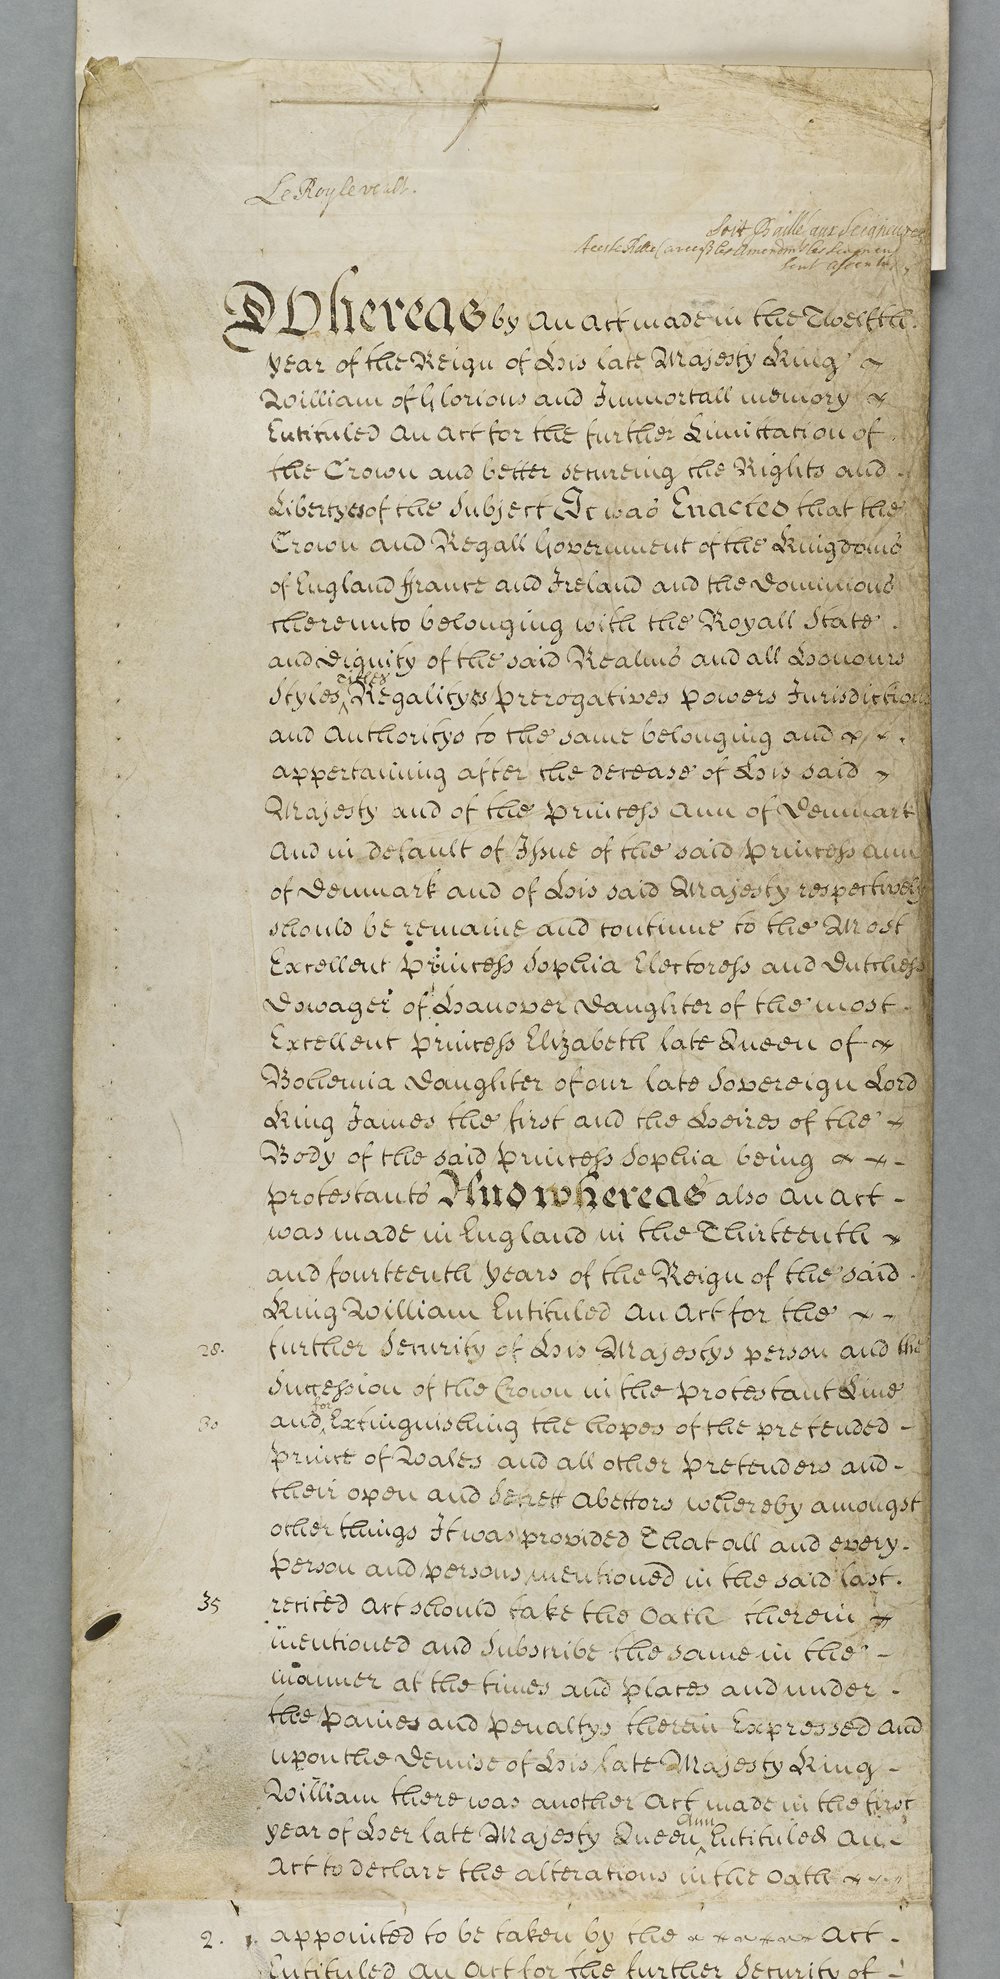 Le Roy le veult.
Soit Baillé aux Seigneurs
A ceste Bille avecq les Amendmts les Seigneurs
sont assentus
Whereas by an Act made in the Twelfth
year of the Reign of His late Majesty King
William of Glorious and Immortall memory
Entituled An Act for the further Limittation of
the Crown and better secureing the Rights and
Libertyes of the Subject It was Enacted that the
Crown and Regall Government of the Kingdoms
of England ffrance and Ireland and the Dominions
thereunto belonging with the Royall State
and Dignity of the said Realms and all Honours
Styles Titles Regalityes Prerogatives Powers Jurisdictions
and Authoritys to the same belonging and
appertaining after the decease of His said
Majesty and of the Princess Ann of Denmark
And in default of Issue of the said Princess Ann
of Denmark and of His said Majesty respectively
should be remaine and continue to the Most
Excellent Princess Sophia Electoress and Dutchess
Dowager of Hanover Daughter of the most
Excellent Princess Elizabeth late Queen of
Bohemia Daughter of our late Sovereign Lord
King James the first and the Heires of the
Body of the said Princess Sophia being
Protestants And whereas also an Act
was made in England in the Thirteenth
and fourteenth years of the Reign of the said
King William Entituled An Act for the
28. further Security of His Majestys person and the
Succession of the Crown in the Protestant Line
30 and for Extinguishing the hopes of the pretended
Prince of Wales and all other Pretenders and
their open and Secrett Abettors whereby amongst
other things It was provided That all and every
Person and persons mentioned in the said last
35 recited Act should take the Oath therein
mentioned and Subscribe the same in the
manner at the times and places and under
the Paines and Penaltys therein Expressed And
upon the Demise of His late Majesty King
William there was another Act made in the first
year of Her late Majesty Queen Ann Entituled An
Act to declare the alterations in the Oath
2. appointed to be taken by the Act
Entituled An Act for the further Security of